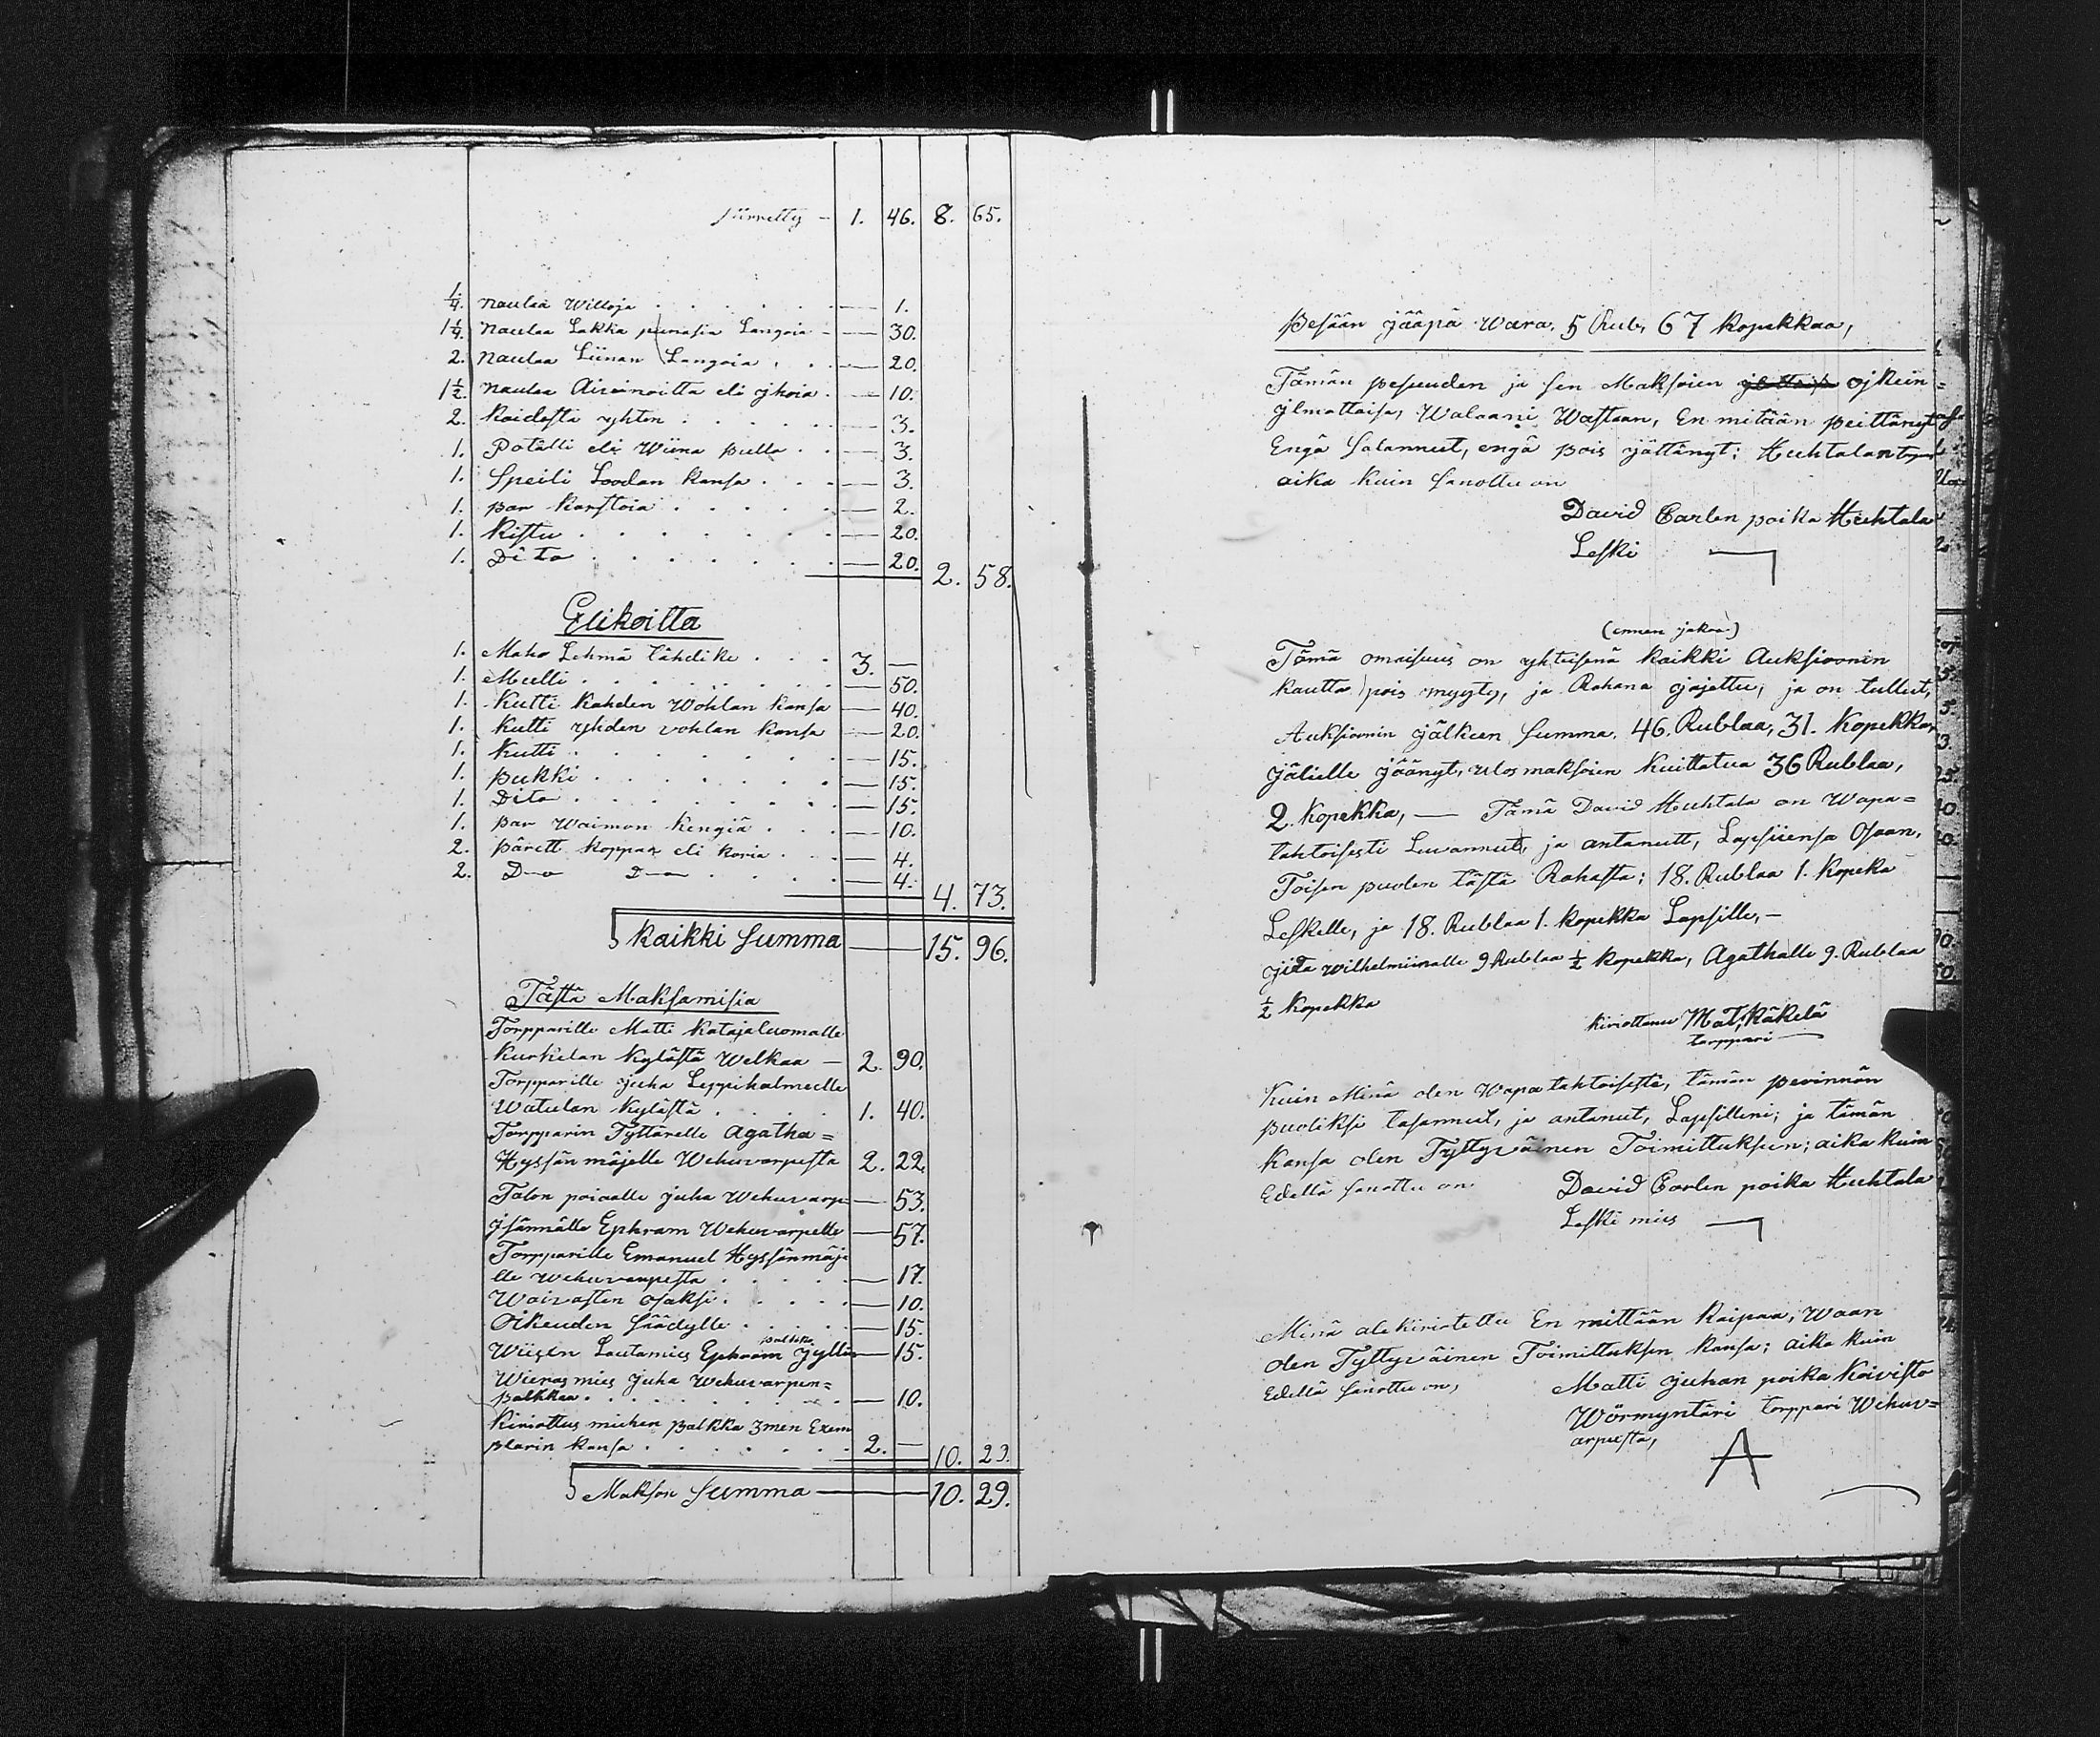 Siirretty - 1. 46. 8. 65.
1/4. naulaa Willoja . . . . . — 1.
1 1/4. naulaa Lakka punasia Langoia - — 30.
2. naulaa Liinan Langoia . . . — 20.
1 1/2. naulaa Aivinoitta eli yhoia . — 10.
2. Kaidesta yhten . . . . . — 3.
1. Potälli eli Wiina pullo . . — 3.
1. Speili Loodan kansa . . . — 3.
1. par karstoia . . . . . — 2.
1. Kistu . . . . . . . — 20.
1. Dito . . . . . . . — 20. 2. 58.
Elikoilta
1. Maho Lehmä tähdike . . . 3. —
1. Mulli . . . . . . . . — 50.
1. Kutti kahden Wohlan kansa — 40.
1. Kutti yhden vohlan kansa — 20.
1. Kutti . . . . . . . — 15.
1. pukki . . . . . . . — 15.
1. Dito . . . . . . . . — 15.
1. par Waimon kengiä . . . — 10.
2. pärett koppaa eli koria . . — 4.
2. D—o D—o . . . . — 4. 4. 73.
Kaikki Summa — 15. 96.
Tästä Maksamisia
Torpparille Matti Katajaluomalle
Kurkelan Kylästä Welkaa — 2. 90.
Torpparille Juha Leppihalmeelle
Watulan Kylästä . . . . 1. 40.
Torpparin Tyttärelle Agatha=
Hyssän mäjelle Wehuvarpesta 2. 22.
Talon poiaalle Juha Wehuvarp= — 53.
Jsännälle Ephram Wehuvarpelle — 57.
Torpparille Emanuel Hyssänmäje
lle Wehuvarpesta . . . . . — 17.
Waivasten osaksi . . . . . — 10.
Oikeuden Säädylle . . . . . — 15.
palkka
Wiisin Lautamies Ephraim Jylli — 15.
Wieras mies Juha Wehuvarpen=
palkkaa . . . . . . . . . — 10.
Kirioittus miehen palkka 3men Exem
plarin kansa . . . . . . . 2. — 10. 29.
Makson Summa — 10. 29.
Pesään jääpä wara, 5 Rub, 67 kopekkaa,
Tämän pesuuden ja sen Maksoien ojkein=
jlmottaisa, Walaani Wastaan, En mitään peittänyt
Engä Salannut, engä pois jättänyt; Huhtalan
aika kuin Sanottu on
David Carlen poika Huhtala
Leski
(ennen jakoa)
Tämä omaisuus on yhteisenä kaikki Auksioonin
kautta pois myyty, ja Rahana jajettu, ja on tullut,
Auksioonin jälkeen Summa, 46. Rublaa, 31. kopekka,
Jälielle jäänyt, ulosmaksoien kuittatua 36 Rublaa,
2. kopekka, — Tämä David Huhtala on Wapa=
tahtoisesti Luvannut, ja antanutt, Lapsiiensa Osaan,
Toisen puolen tästä Rahasta; 18. Rublaa 1. kopeka
Leskelle, ja 18. Rublaa 1. kopekka Lapsille, —
jita wilhelmiinalle 9 Rublaa 1/2 kopekka, Agathalle 9. Rublaa
1/2 kopekka
Kirioittanu Mat, Käkelä
torppari
Kuin Minä olen Wapa tahtoisesti, tämän perinnän
puoliksi tasannut, ja antanut, Lapsilleni; ja tämän
Kansa olen Tyttyväinen Toimittuksen; aika kuin
Edellä Sanottu on David Carlen poika Huhtala
Leski mies
Minä ale kiriotettu En mittään kaipaa, Waan
olen Tyttyväinen Toimittuksen kansa; aika kuin
Edellä Sanottu on, Matti Juhan poika Koivisto
Wörmyntäri torppari Wehuv=
arpesta,
A